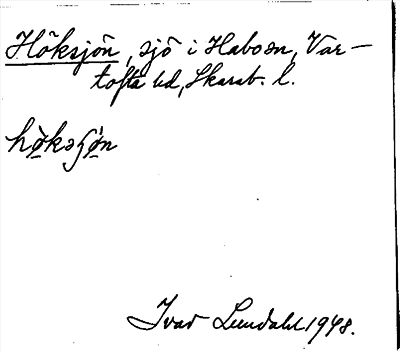 Höksjön, sjö i Habo sn, Var-
tofta hd, Skarab. l.
hø̀kəʃø̀n
Ivar Lundahl 1948.